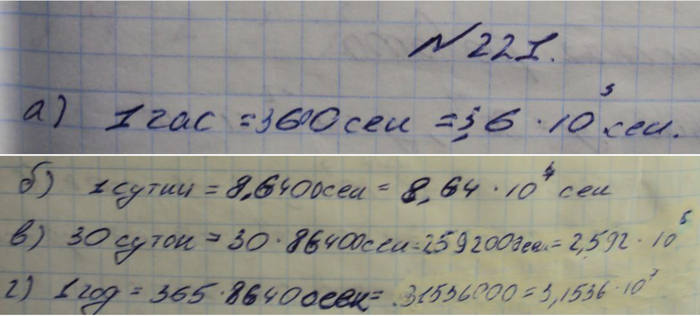 N 221.
а) 1 час = 3600 сек = 3,6 · 10³ сек.
б) 1 сутки = 8,6400 сек = 8,64 · 10⁴ сек
в) 30 суток = 30 · 86400 сек = 2592000 сек = 2,592 · 10⁶
г) 1 год = 365 · 86400 сек = 31536000 = 3,1536 · 10⁷